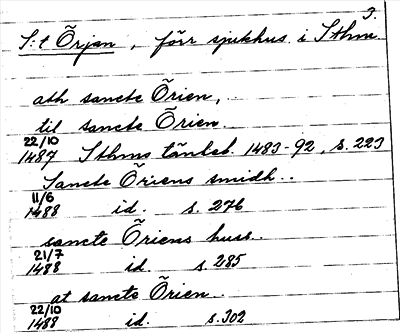 J.
S:t Õrjan, förr sjukhus i Sthm.
ath sancte Õrien,
til sancte Õrien.
22/10
1487 Sthms tänkeb. 1483-92, s. 223
Sancte Õriens smidh..
11/6
1488 id. s. 276
sancte Õriens huss..
21/7
1488 id. s. 285
at sancte Õrien..
22/10
1488 id. s. 302